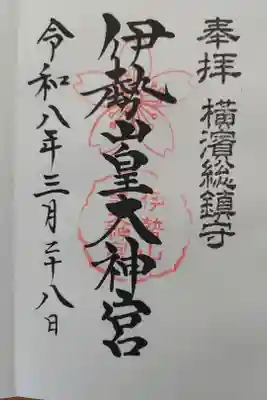 奉拝 横濱総鎮守
伊勢山皇大神宮
令和八年三月二十八日